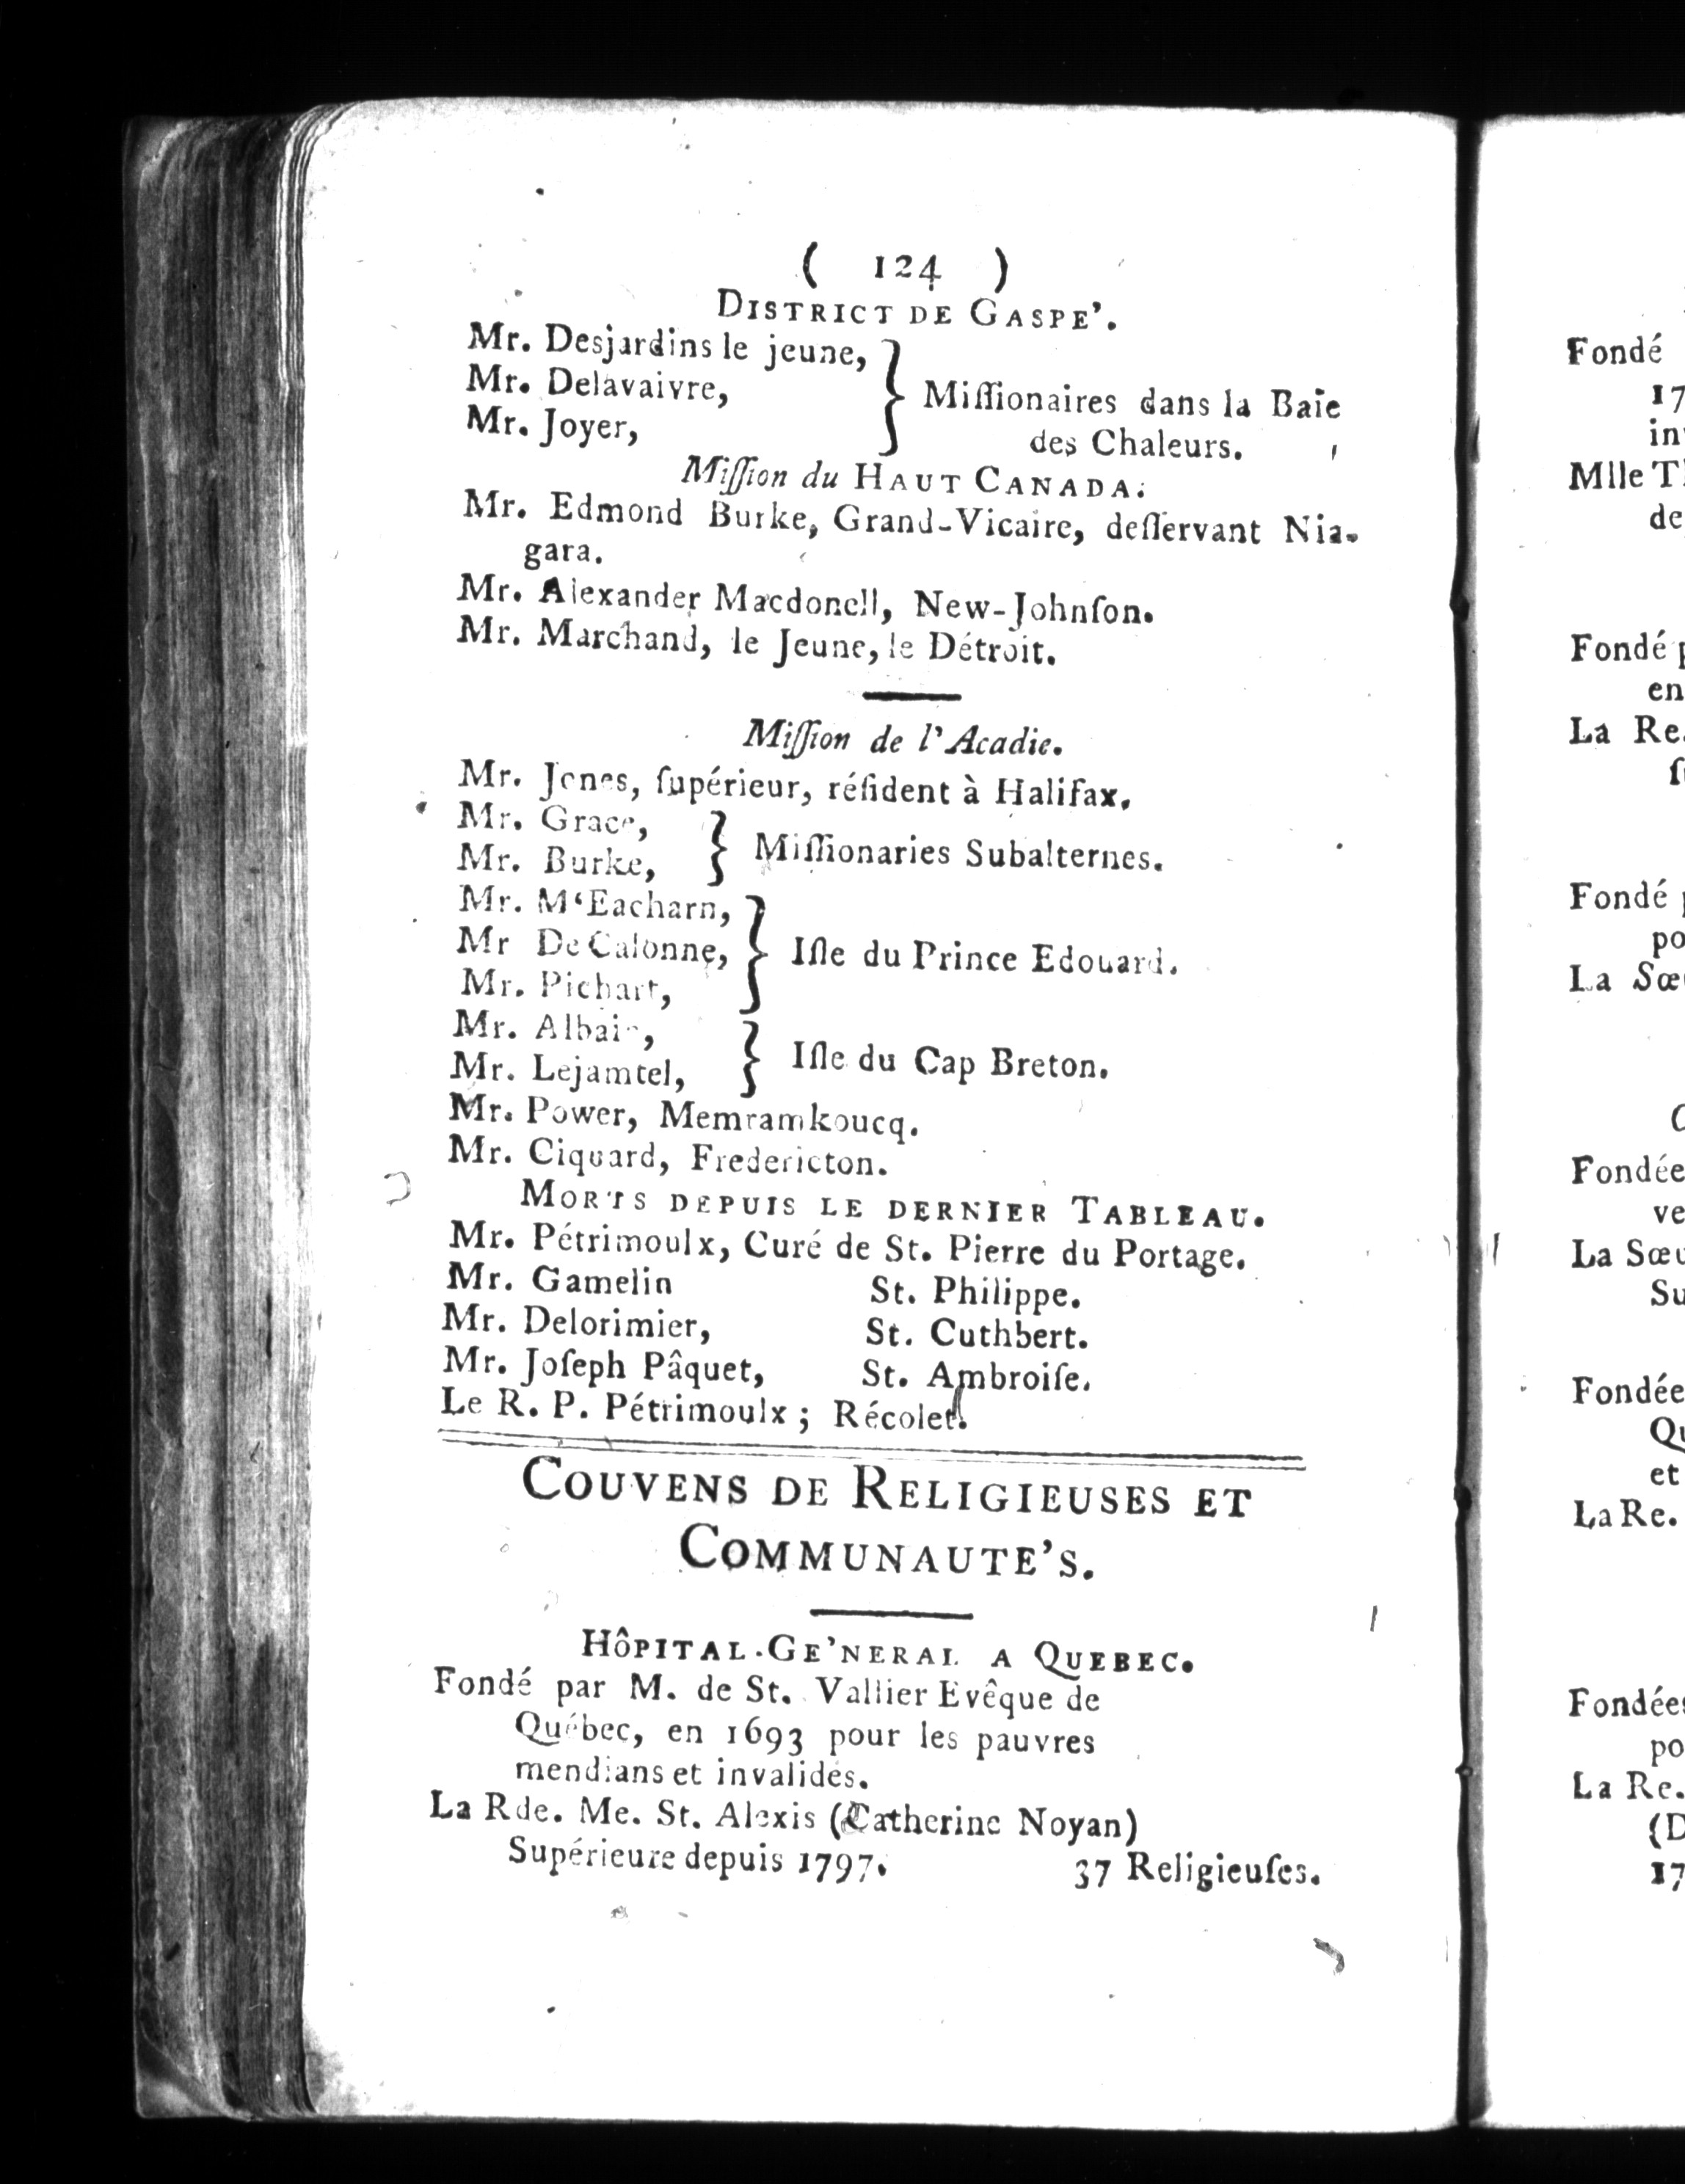 ( 124 )
DISTRICT DE GASPE'.
Mr. Desjardins le jeune,
Mr. Delavaivre,
Mr. Joyer,
} Miſſionaires dans la Baïe
des Chaleurs.
Miſſion du HAUT CANADA.
Mr. Edmond Burke, Grand-Vicaire, deſſervant Nia-
gara.
Mr. Alexander Macdonell, New-Johnſon.
Mr. Marchand, le Jeune, le Détroit.
Miſſion de l'Acadie.
Mr. Jones, ſupérieur, réſident à Halifax.
Mr. Grace,
Mr. Burke,
} Miſſionaries Subalternes.
Mr. M‘Eacharn,
Mr De Calonne,
Mr. Pichart,
} Iſle du Prince Edouard.
Mr. Albain,
Mr. Lejamtel,
} Iſle du Cap Breton.
Mr. Power, Memramkoucq.
Mr. Ciquard, Fredericton.
MORTS DEPUIS LE DERNIER TABLEAU.
Mr. Pétrimoulx, Curé de St. Pierre du Portage.
Mr. Gamelin St. Philippe.
Mr. Delorimier, St. Cuthbert.
Mr. Joſeph Pâquet, St. Ambroiſe.
Le R. P. Pétrimoulx ; Récolet.
COUVENS DE RELIGIEUSES ET
COMMUNAUTE'S.
HôPITAL-GE'NERAL A QUEBEC.
Fondé par M. de St. Vallier Evêque de
Québec, en 1693 pour les pauvres
mendians et invalides.
La Rde. Me. St. Alexis (Catherine Noyan)
Supérieure depuis 1797. 37 Religieuſes.
Fondé
17
in
Mlle
de
Fondé
en
La Re.
Fondé
po
La
Fondée
ve
La
Su
Fondée
Qu
et
La Re.
Fondées
po
La Re.
(D
17